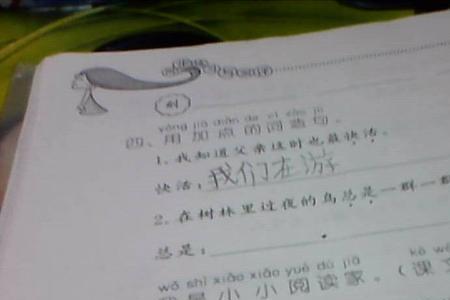 yòng jiā diǎn de cí zào jù
四、用加点的词造句。
1. 我知道父亲这时也最快活。
快活：我们在游
2. 在树林里过夜的鸟总是一群一
总是：
wǒ shì xiǎo xiǎo yuè dú jiā kè
我是小小阅读家。（课